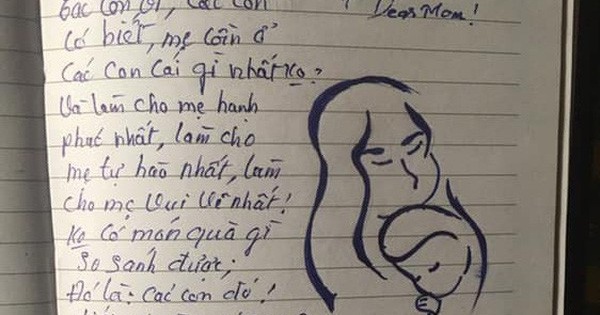 Các con ơi, các con
Dear Mom!
Có biết, mẹ cần ở
Các con cái gì nhất ko?
Và làm cho mẹ hạnh
phúc nhất, làm cho
mẹ tự hào nhất, làm
cho mẹ vui vẻ nhất!
Ko có món quà gì
so sánh được;
Đó là: các con đó!